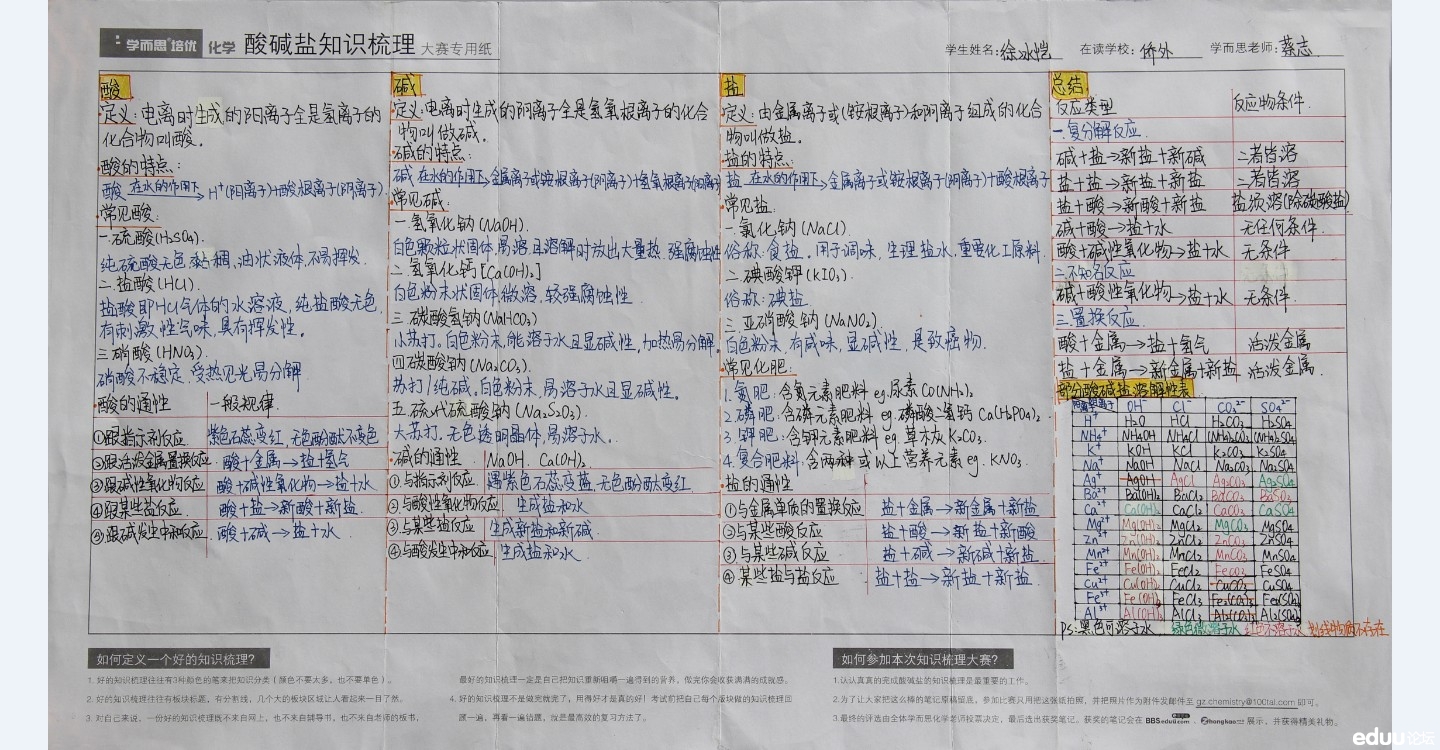 学而思培优 化学 酸碱盐知识梳理 大赛专用纸
学生姓名:徐冰恺 在读学校:侨外 学而思老师:蔡志
酸
定义:电离时生成的阳离子全是氢离子的
化合物叫酸。
酸的特点:
酸 在水的作用下→ H⁺(阳离子)+酸根离子(阴离子).
常见酸:
一.硫酸(H₂SO₄).
纯硫酸无色.黏稠,油状液体,不易挥发.
二.盐酸(HCl).
盐酸即HCl气体的水溶液,纯盐酸无色,
有刺激性气味,具有挥发性。
三.硝酸(HNO₃).
硝酸不稳定,受热见光易分解
酸的通性 一般规律.
①跟指示剂反应 紫色石蕊变红,无色酚酞不变色
②跟活泼金属置换反应 酸+金属→盐+氢气
③跟碱性氧化物反应 酸+碱性氧化物→盐+水
④跟某些盐反应 酸+盐→新酸+新盐.
⑤跟碱发生中和反应 酸+碱→盐+水.
碱
定义:电离时生成的阴离子全是氢氧根离子的化合
物叫做碱.
碱的特点:
碱 在水的作用下→金属离子或铵根离子(阴离子)+氢氧根离子(阴离子)
常见碱:
一.氢氧化钠(NaOH).
白色颗粒状固体,易溶且溶解时放出大量热.强腐蚀性
二.氢氧化钙[Ca(OH)₂]
白色粉末状固体,微溶,较强腐蚀性.
三.碳酸氢钠(NaHCO₃)
小苏打.白色粉末,能溶于水且显碱性,加热易分解.
四.碳酸钠(Na₂CO₃).
苏打/纯碱,白色粉末,易溶于水且显碱性。
五.硫代硫酸钠(Na₂S₂O₃).
大苏打.无色透明晶体,易溶于水.
碱的通性 NaOH. Ca(OH)₂.
①与指示剂反应 遇紫色石蕊变蓝,无色酚酞变红.
②与酸性氧化物反应 生成盐和水
③与某些盐反应 生成新盐和新碱.
④与酸发生中和反应 生成盐和水.
盐
定义:由金属离子或(铵根离子)和阴离子组成的化合
物叫做盐.
盐的特点:
盐 在水的作用下→金属离子或铵根离子(阴离子)+酸根离子
常见盐.
一.氯化钠(NaCl)
俗称:食盐.用于调味,生理盐水,重要化工原料.
二.碘酸钾(KIO₃).
俗称:碘盐
三.亚硝酸钠(NaNO₂).
白色粉末,有咸味,显碱性,是致癌物.
常见化肥:
1.氮肥:含氮元素肥料eg.尿素CO(NH₂)₂.
2.磷肥:含磷元素肥料eg.磷酸二氢钙Ca(H₂PO₄)₂.
3.钾肥:含钾元素肥料eg.草木灰K₂CO₃.
4.复合肥料:含两种或以上营养元素eg.KNO₃.
盐的通性
①与金属单质的置换反应 盐+金属→新金属+新盐
②与某些酸反应 盐+酸→新盐+新酸
③与某些碱反应 盐+碱→新碱+新盐.
④某些盐与盐反应 盐+盐→新盐+新盐.
总结
反应类型 反应物条件.
一.复分解反应.
碱+盐→新盐+新碱 二者皆溶
盐+盐→新盐+新盐 二者皆溶
盐+酸→新酸+新盐
碱+酸→盐+水 无任何条件.
酸+碱性氧化物→盐+水 无条件
二.不知名反应
碱+酸性氧化物→盐+水 无条件.
三.置换反应.
酸+金属→盐+氢气 活泼金属
盐+金属→新金属+新盐 活泼金属.
部分酸碱盐溶解性表
OH⁻ Cl⁻ CO₃²⁻ SO₄²⁻
H⁺ H₂O HCl H₂CO₃ H₂SO₄
NH₄⁺ NH₄OH NH₄Cl (NH₄)₂CO₃ (NH₄)₂SO₄
K⁺ KOH KCl K₂CO₃ K₂SO₄
Na⁺ NaOH NaCl Na₂CO₃ Na₂SO₄
Ag⁺ AgOH AgCl Ag₂CO₃ Ag₂SO₄
Ba²⁺ Ba(OH)₂ BaCl₂ BaCO₃ BaSO₄
Ca²⁺ Ca(OH)₂ CaCl₂ CaCO₃ CaSO₄
Mg²⁺ Mg(OH)₂ MgCl₂ MgCO₃ MgSO₄
Zn²⁺ Zn(OH)₂ ZnCl₂ ZnCO₃ ZnSO₄
Mn²⁺ Mn(OH)₂ MnCl₂ MnCO₃ MnSO₄
Fe²⁺ Fe(OH)₂ FeCl₂ FeCO₃ FeSO₄
Cu²⁺ Cu(OH)₂ CuCl₂ CuCO₃ CuSO₄
Fe³⁺ Fe(OH)₃ FeCl₃ Fe₂(CO₃)₃ Fe₂(SO₄)₃
Al³⁺ Al(OH)₃ AlCl₃ Al₂(CO₃)₃ Al₂(SO₄)₃
PS:黑色可溶于水 绿色微溶于水 红色不溶于水 划线物质不存在
如何定义一个好的知识梳理?
1. 好的知识梳理往往有3种颜色的笔来把知识分类(颜色不要太多,也不要单色)。
2. 好的知识梳理往往有板块标题,有分割线,几个大的板块区域让人看起来一目了然。
3. 对自己来说,一份好的知识梳理既不来自网上,也不来自辅导书,也不来自老师的板书,
最好的知识梳理一定是自己把知识重新咀嚼一遍得到的营养,做完你会收获满满的成就感。
4. 好的知识梳理不是做完就完了,用得好才是真的好!考试前把自己每个版块做的知识梳理回
顾一遍,再看一遍错题,就是最高效的复习方法了。
如何参加本次知识梳理大赛?
1.认认真真的完成酸碱盐的知识梳理是最重要的工作。
2.为了让大家把这么棒的笔记原稿留底,参加比赛只用把这张纸拍照,并把照片作为附件发邮件至 gz.chemistry@100tal.com 即可。
3.最终的评选由全体学而思化学老师投票决定,最后选出获奖笔记。获奖的笔记会在 BBS.eduu.com、zhongkao 展示,并获得精美礼物。
eduu论坛